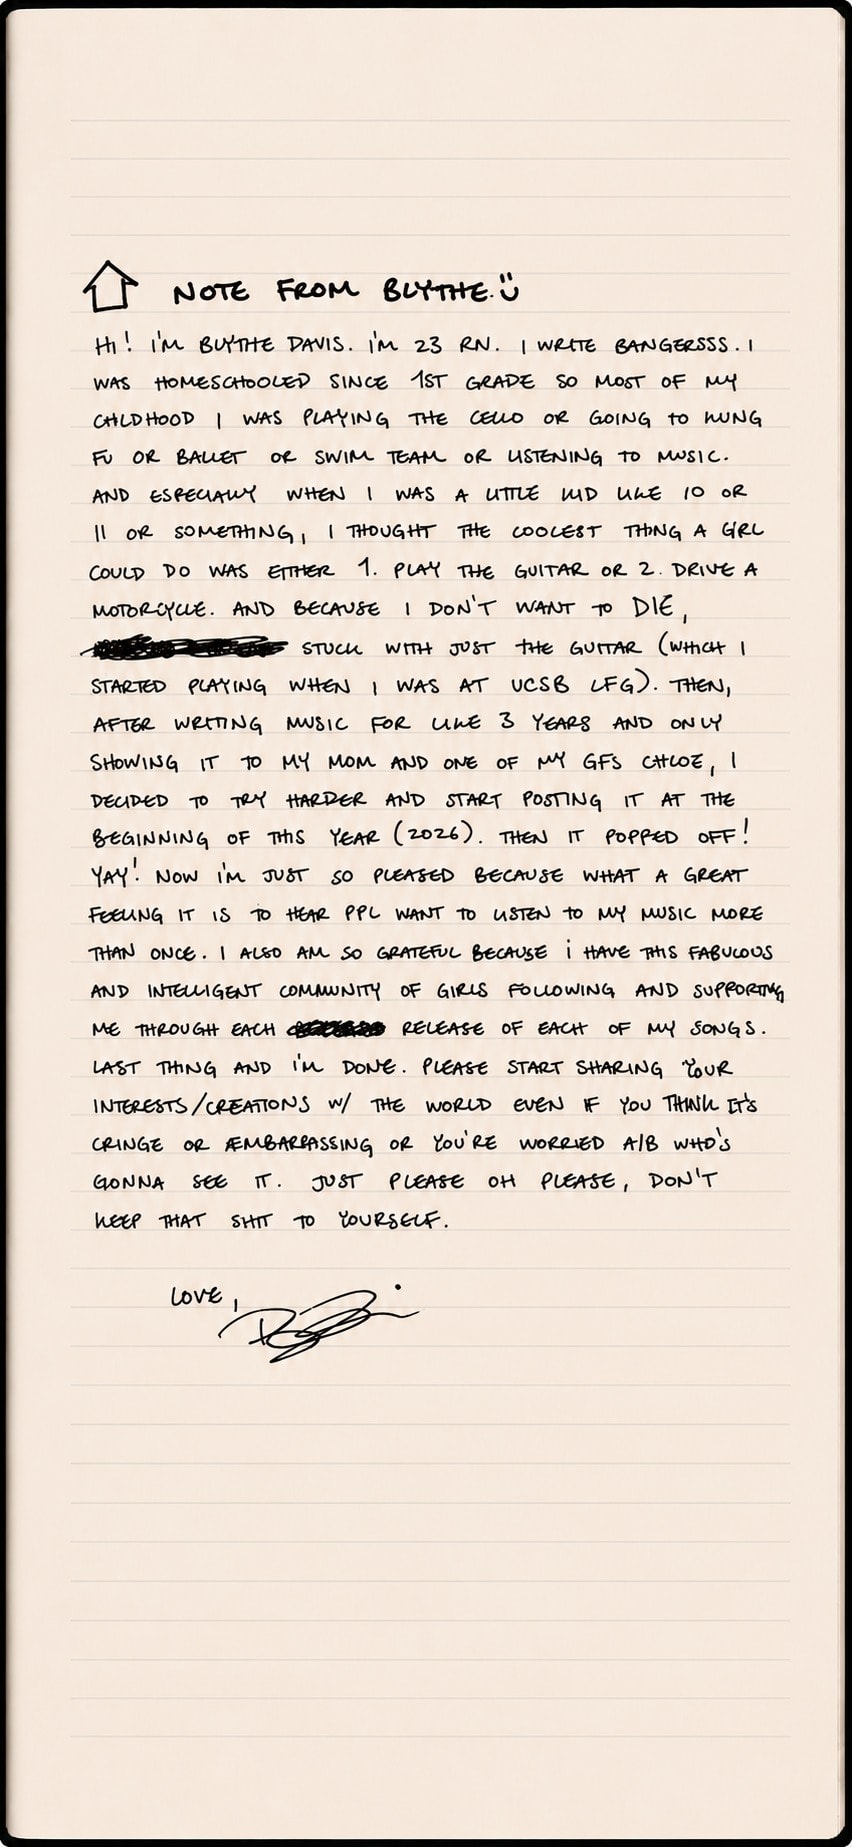 NOTE FROM BLYTHE.
HI! I'M BLYTHE DAVIS. I'M 23 RN. I WRITE BANGERSSS. I
WAS HOMESCHOOLED SINCE 1ST GRADE SO MOST OF MY
CHILDHOOD I WAS PLAYING THE CELLO OR GOING TO KUNG
FU OR BALLET OR SWIM TEAM OR LISTENING TO MUSIC.
AND ESPECIALLY WHEN I WAS A LITTLE KID LIKE 10 OR
11 OR SOMETHING, I THOUGHT THE COOLEST THING A GIRL
COULD DO WAS EITHER 1. PLAY THE GUITAR OR 2. DRIVE A
MOTORCYCLE. AND BECAUSE I DON'T WANT TO DIE,
STUCK WITH JUST THE GUITAR (WHICH I
STARTED PLAYING WHEN I WAS AT UCSB LFG). THEN,
AFTER WRITING MUSIC FOR LIKE 3 YEARS AND ONLY
SHOWING IT TO MY MOM AND ONE OF MY GFS CHLOE, I
DECIDED TO TRY HARDER AND START POSTING IT AT THE
BEGINNING OF THIS YEAR (2026). THEN IT POPPED OFF!
YAY! NOW I'M JUST SO PLEASED BECAUSE WHAT A GREAT
FEELING IT IS TO HEAR PPL WANT TO LISTEN TO MY MUSIC MORE
THAN ONCE. I ALSO AM SO GRATEFUL BECAUSE i HAVE THIS FABULOUS
AND INTELLIGENT COMMUNITY OF GIRLS FOLLOWING AND SUPPORTING
ME THROUGH EACH RELEASE OF EACH OF MY SONGS.
LAST THING AND I'M DONE. PLEASE START SHARING YOUR
INTERESTS/CREATIONS W/ THE WORLD EVEN IF YOU THINK IT'S
CRINGE OR EMBARRASSING OR YOU'RE WORRIED A/B WHO'S
GONNA SEE IT. JUST PLEASE OH PLEASE, DON'T
KEEP THAT SHIT TO YOURSELF.
LOVE,